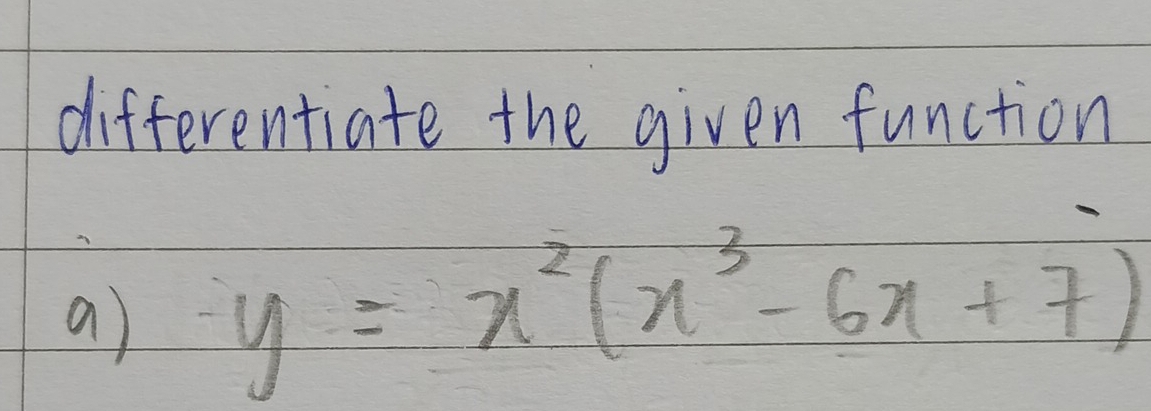 differentiate the given function
a) y = x²(x³ - 6x + 7)